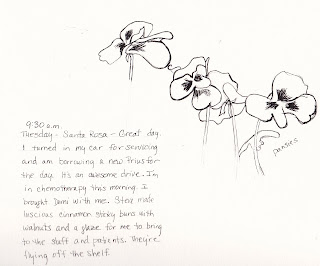 9:30 a.m.
Tuesday - Santa Rosa - Great day.
I turned in my car for servicing
and am borrowing a new Prius for
the day. It's an awesome drive. I'm
in chemotherapy this morning. I
brought Demi with me. Steg made
luscious cinnamon sticky buns with
walnuts and a glaze for me to bring
to the staff and patients. They're
flying off the shelf.
pansies